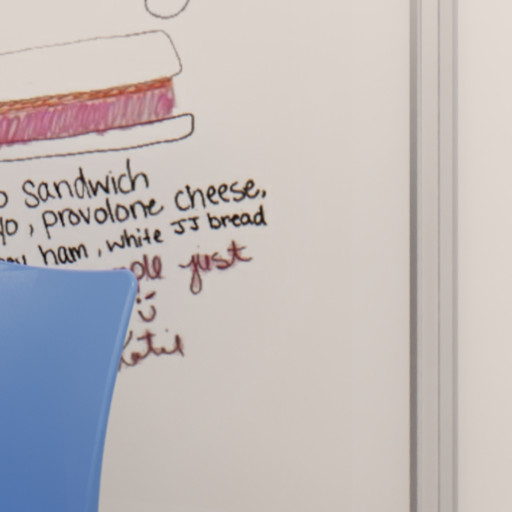 sandwich
, provolone cheese,
ham, white JJ bread
just
:)
Katie